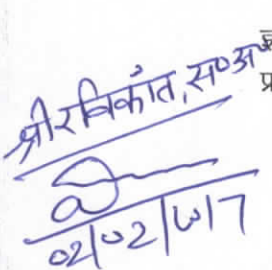 श्री रविकांत, स०अ०
प्र
02/02/2017